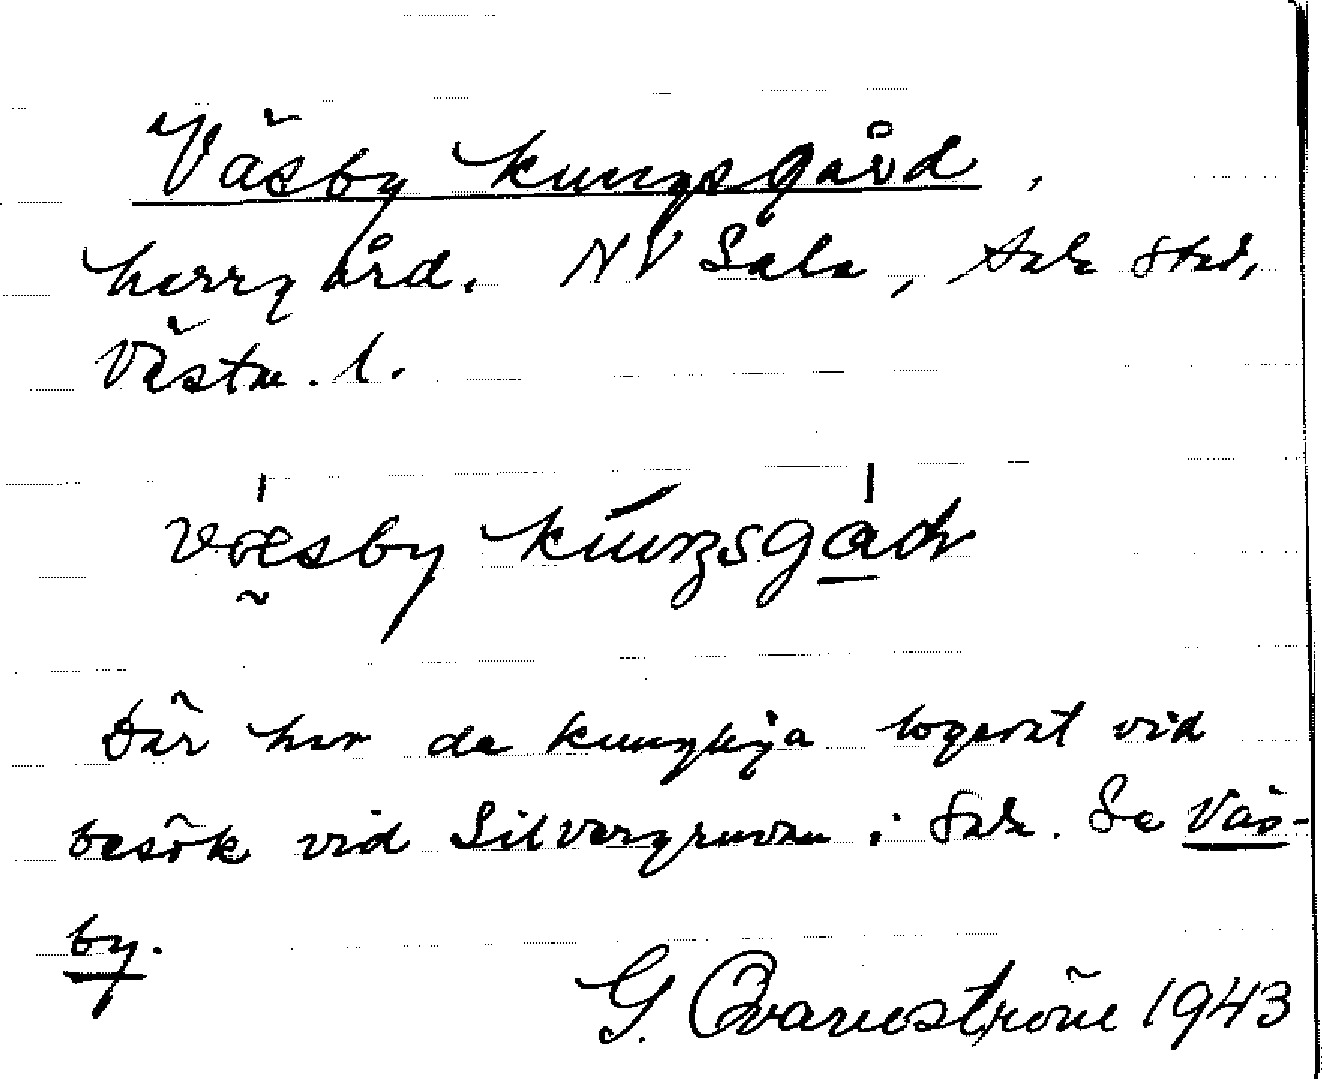 Väsby kungsgård,
herrgård. NV Sala, Sala stad,
Västm. l.
væsby kuŋsgád
Där har de kungliga logerat vid
besök vid Silvergruvan i Sala. Se Väs-
by.
G. Qvarnström 1943